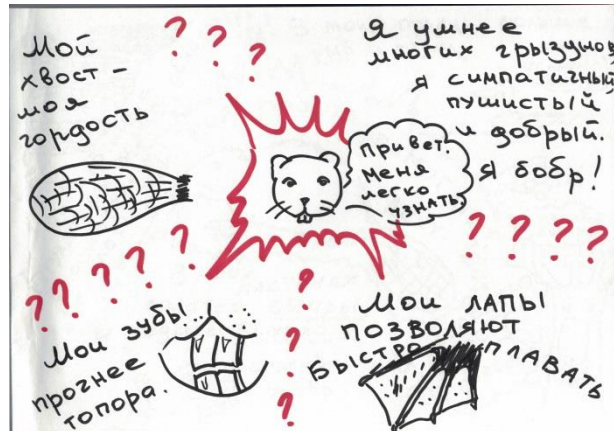 Мой
хвост -
моя
гордость
? ? ?
? ?
?
Я умнее
многих грызунов
я симпатичный
пушистый
и добрый.
Я бобр!
Привет.
Меня
легко
узнать
? ? ? ? ? ?
? ? ? ?
Мои зубы
прочнее
топора.
?
?
?
?
Мои лапы
позволяют
быстро плавать